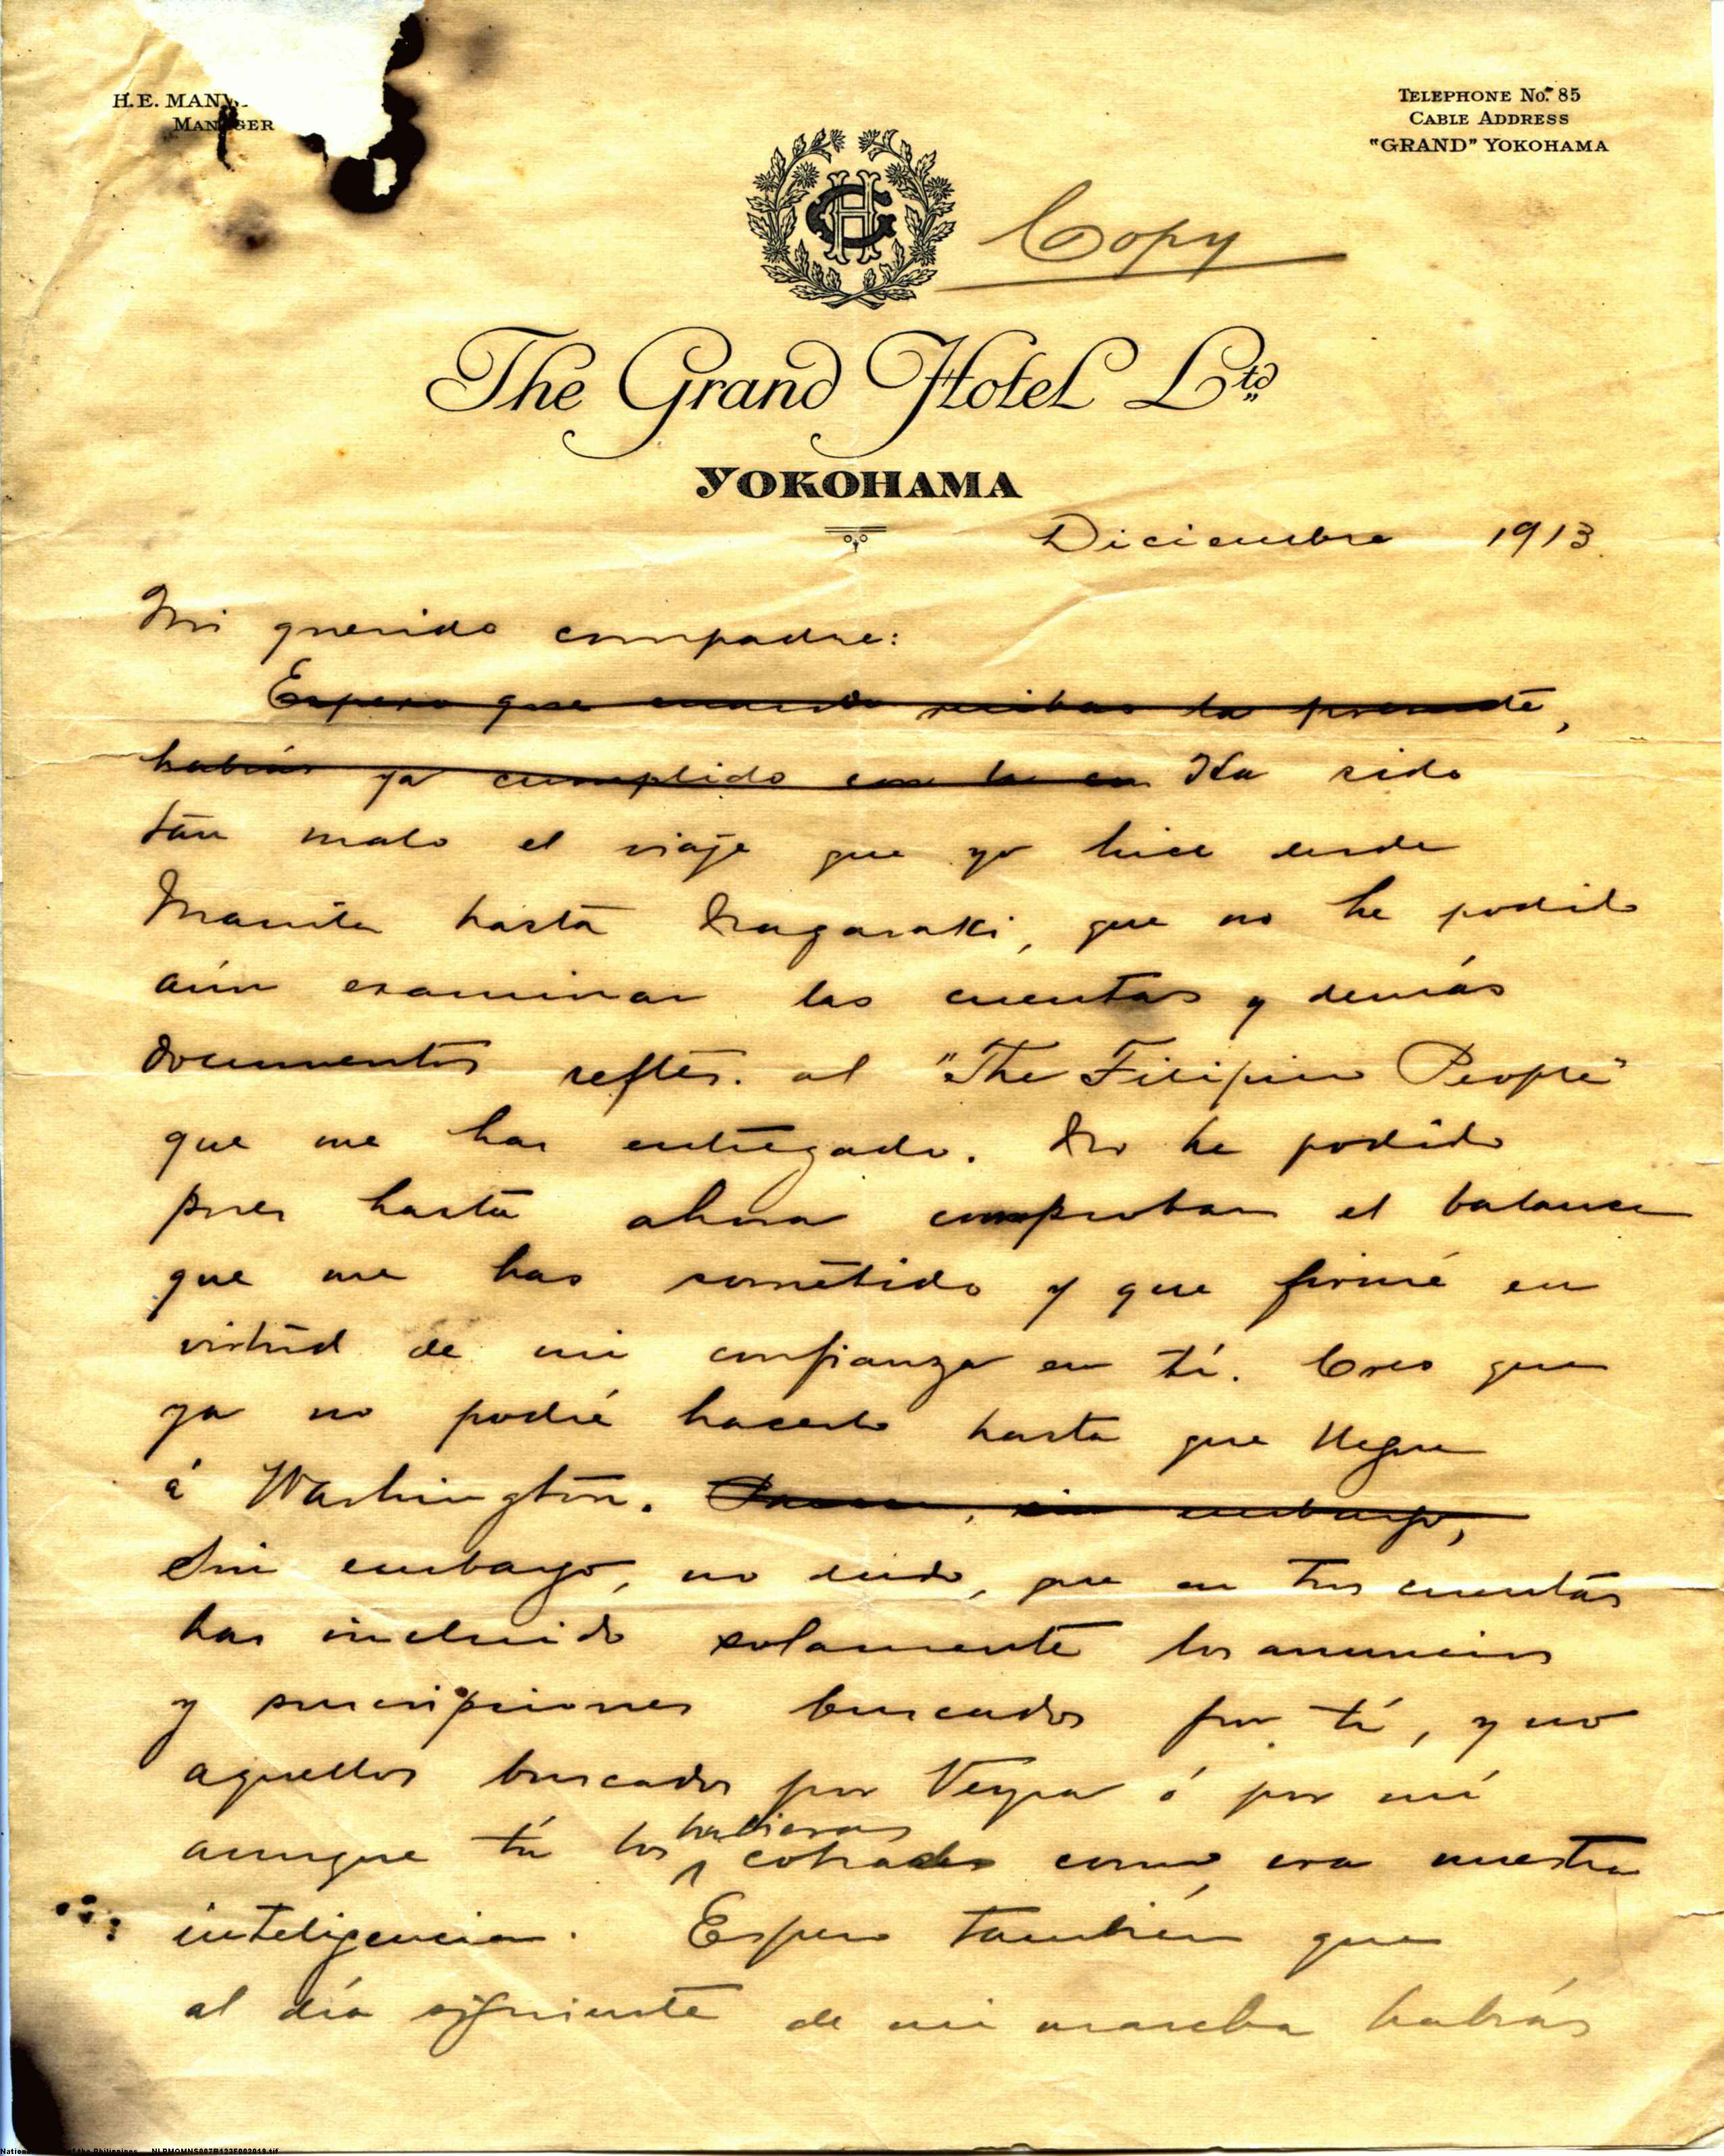 H.E. MANW
MANAGER
TELEPHONE No. 85
CABLE ADDRESS
"GRAND" YOKOHAMA
GH
Copy
The Grand Hotel Ltd
YOKOHAMA
Diciembre 1913.
Mi querido compadre:
Espero que cuando recibas la presente,
habrás ya cumplido con la en Ha sido
tan malo el viaje que yo hice desde
Manila hasta Nagasaki, que no he podido
aún examinar las cuentas y demás
documentos reftes. al "The Filipino People"
que me has entregado. No he podido
pues hasta ahora comprobar el balance
que me has sometido y que firmé en
virtud de mi confianza en tí. Creo que
ya no podré hacerlo hasta que llegue
á Washington. , sin embargo,
Sin embargo, no dudo, que en tus cuentas
has incluido solamente los anuncios
y suscripciones buscados por tí, y no
aquellos buscados por Veyra ó por mí
aunque tú los hubieras cobrado como era nuestra
inteligencia. Espero también que
al día siguiente de mi marcha habrás
National of the Philippines NLPMQMNS007B122F002019.tif